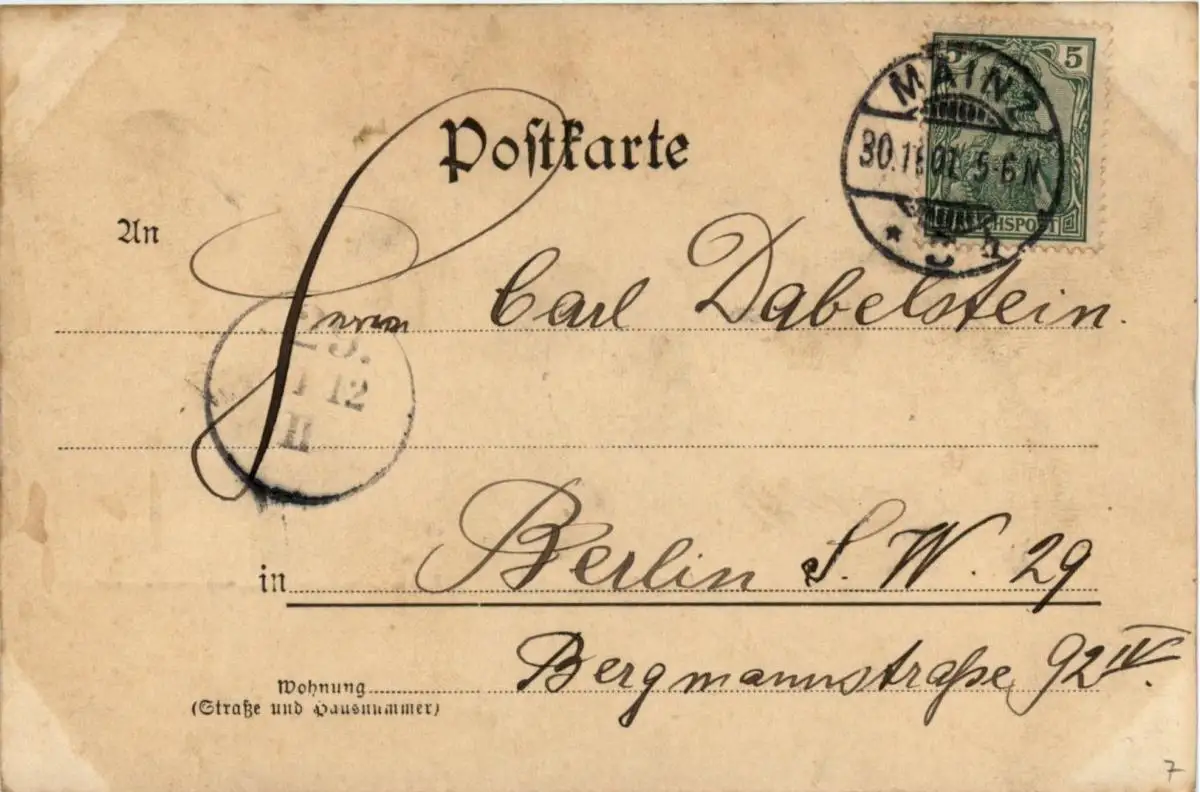 5 5
MAINZ
30.11.01. 5-6 N
* 5 h
REICHSPOST
Postkarte
An
Herrn Carl Dabelstein.
1 12
II
in Berlin S. W. 29
Bergmannstraße 92 IV.
Wohnung
(Straße und Hausnummer)
7